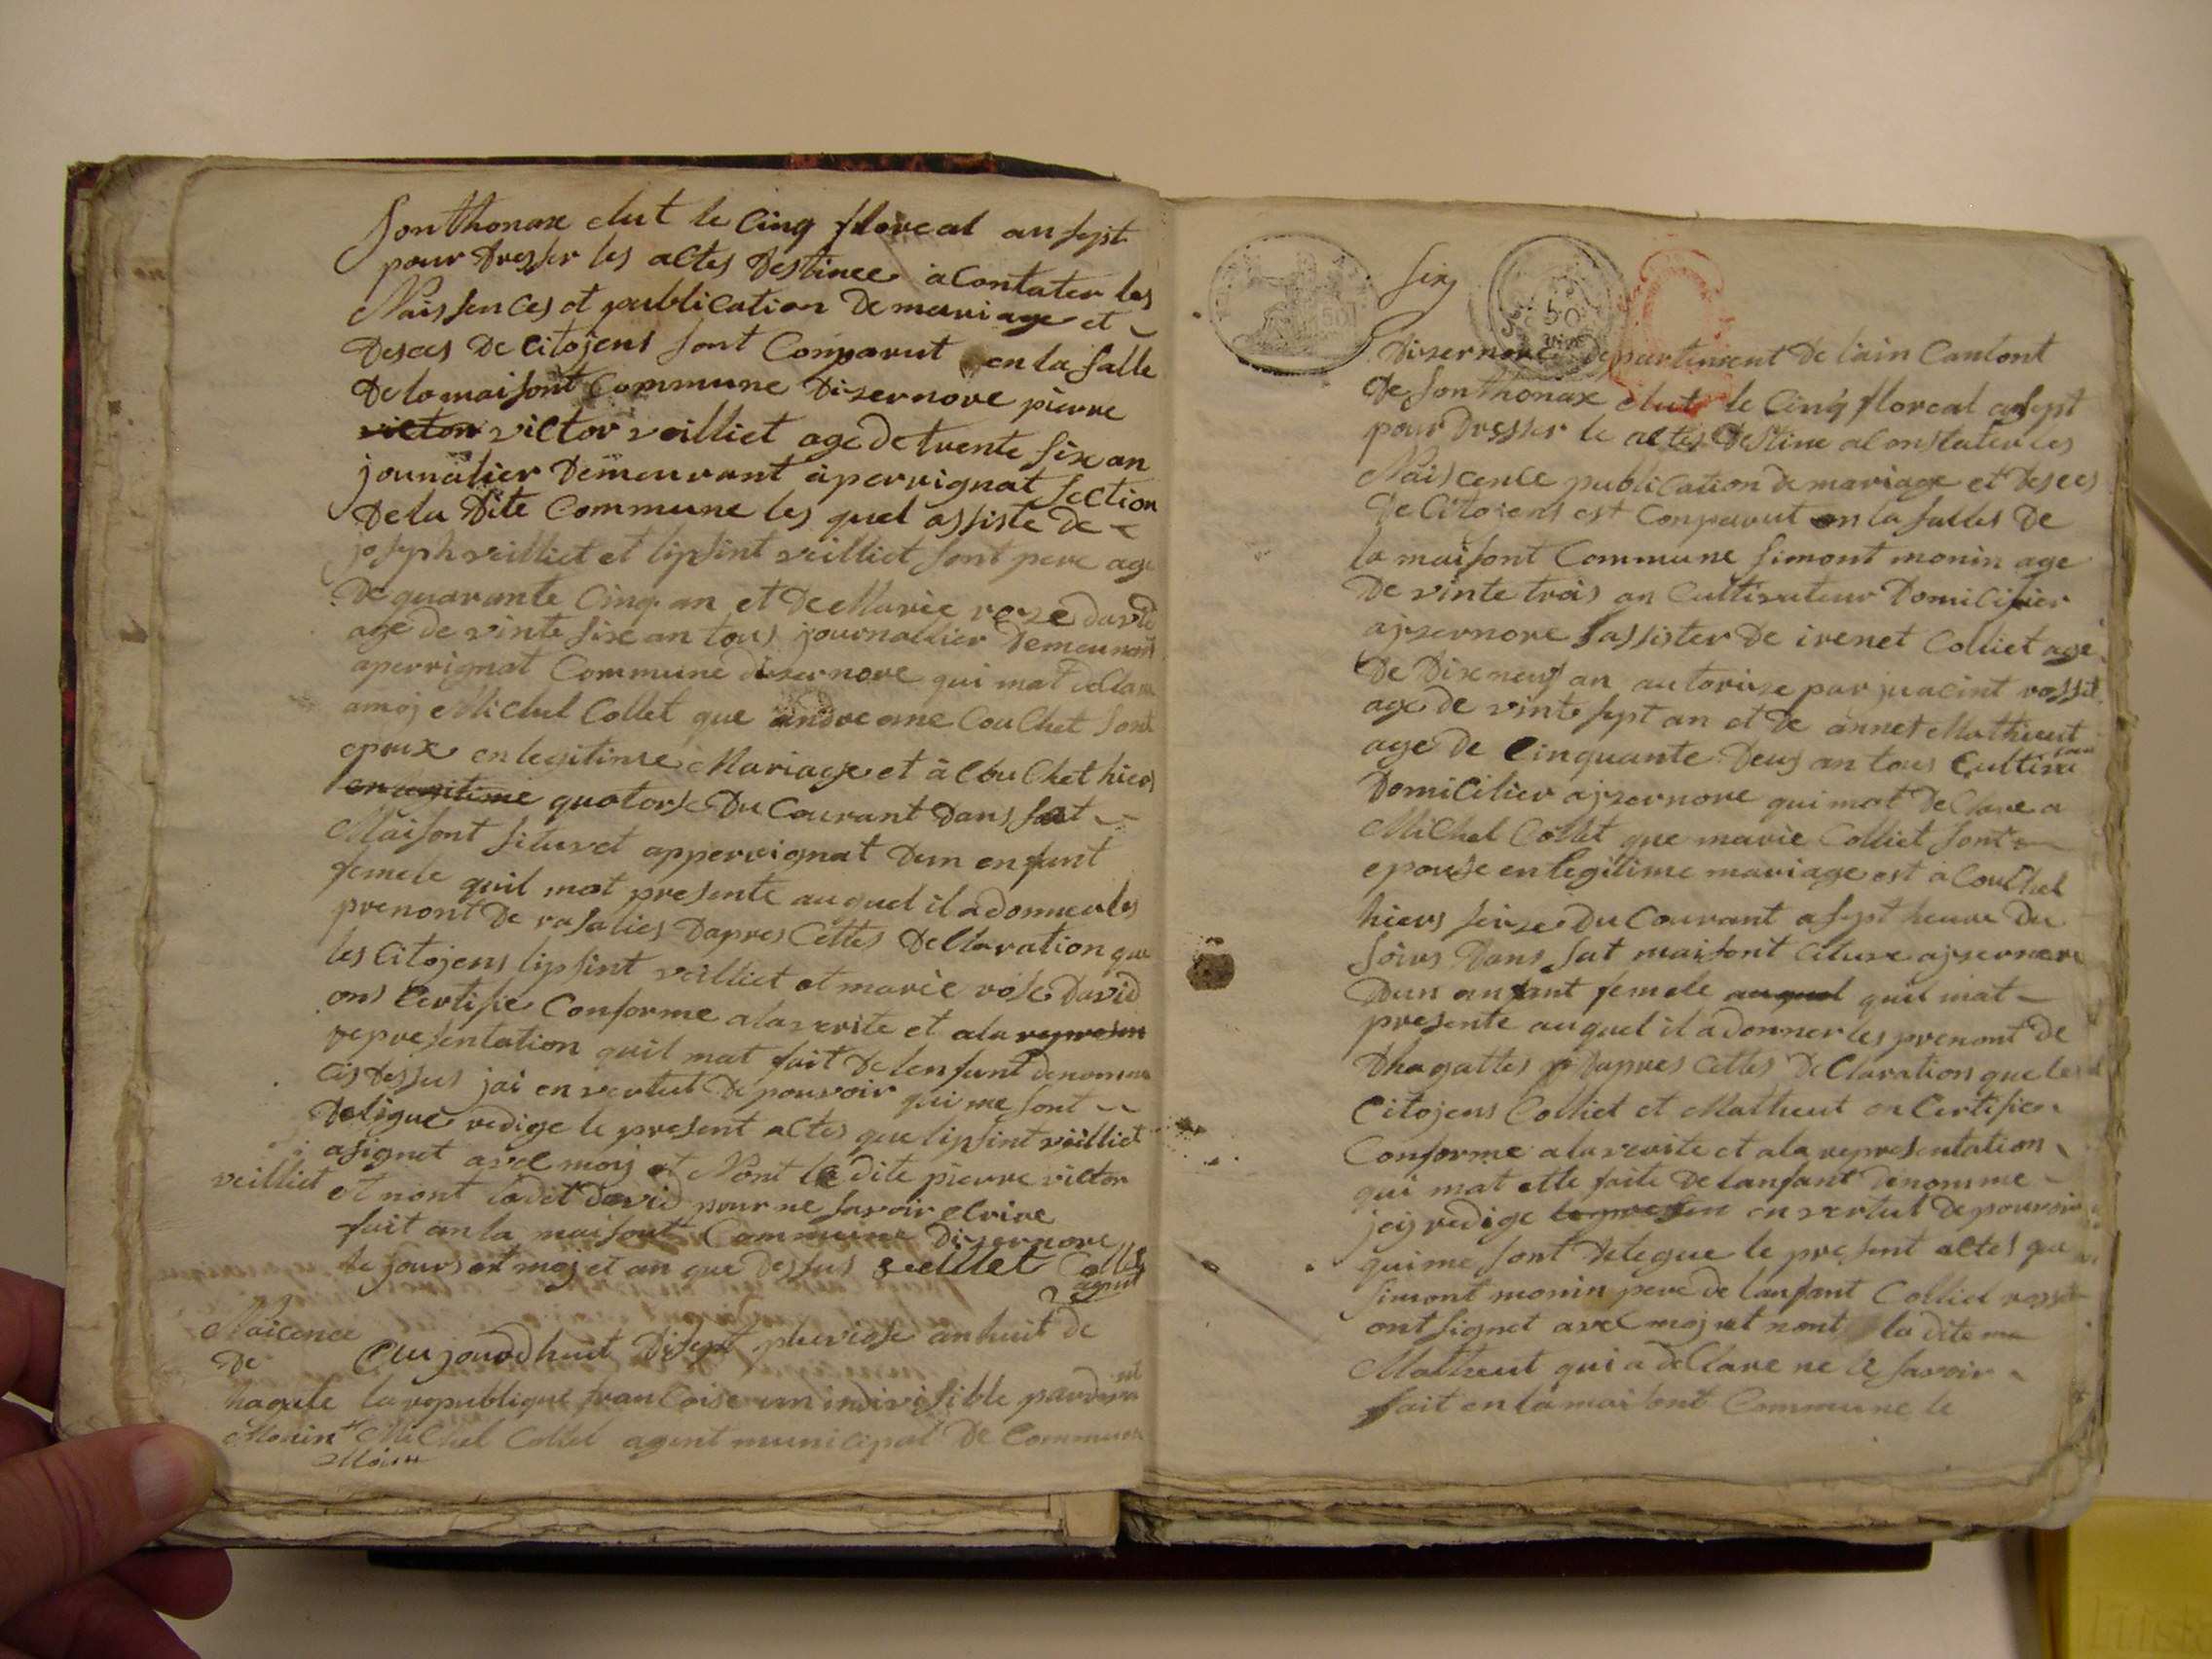 Sonthonax elut le Cinq floreal an sept
pour Dresser les actes Destinee a Contater les
Naissences et publication De mariage et
Deses De Citojens sont Comparut en la salle
De la maisont Commune Disernore pierre
victor victor veilliet age de trente six an
jounalier Demeurant a perrignat section
De la Dite Commune les quel assiste De
joseph veilliet et lipsint veilliet sont pere age
De quarante Cinq an et De Marie roze david
age de vinte six an tous journallier Demeurant
a perrignat Commune disernore qui mat declare
a moj Michel Collet que andre ane Couchet sont
epoux en legitime Mariage et a Couchet hiers
en legitime quatorse Du Courant Dans sat
Maisont situret apperrignat Dun enfant
femele quil mat presente au quel il a donner les
prenont De rosalies Dapres Cettes Declaration que
les Citojens lipsint veilliet et marie rose David
ons Certifie Conforme a la verite et a la represen
representation quil mat fait De lenfant denomme
cis Dessus jai en vertut De pouvoir qui me sont
Deligue redige le present actes que lipsint veilliet
a signet avec moj et Nont le dite pierre victor
veilliet et nont ladet David pour ne savoir elrire
fait en la maisont Commune Disernore
le jours et moj et an que Dessus veilliet Collet
agent
Naicence
De
hagate
Monin
Monin
Au jourdhuit Disept pluviose an huit de
la republique francoise un indivisible pardevent
Michel Collet agent municipal De Commune
six
50
50
Disernore Departement De lain Cantont
De Sonthonax elut le Cinq floreal an sept
pour Dresser le actes Destine a Constater les
Naiscence publication De mariage et Deses
De Citoiens est Comparut en la salles De
la maisont Commune simont monin age
De vinte trois an Cultivateur Domicilier
ajzernore sassister De irenet Colliet age
De Dix neuf an autorize par juacint rosset
age de vinte sept an et De annet Mathieut
age De Cinquante Deus an tous Cultiva
Domicilier ajzernore qui mat Declare a
Michel Collet que marie Colliet sont
epouse en legitime mariage est a Couchet
hiers seize Du Courant a sept heure Du
soirs Dans sat maisont Citure ajsernore
Dun anfant femele au quel quil mat
presente au quel il a donner les prenont De
Dhagattes Dapres Cettes Declaration que les
Citojens Colliet et Matheut on Certifier
Conforme a la verite et a la representation
qui mat ette faite De lanfant Denomme
jej redige le presen en vertut De pouvoir
qui me sont Delegue le present actes que
simont monin pere De lanfant Colliet rosset
ont signet avec moj et nont la dite
Matheut qui a declare ne le savoir
fait en la maisont Commune le